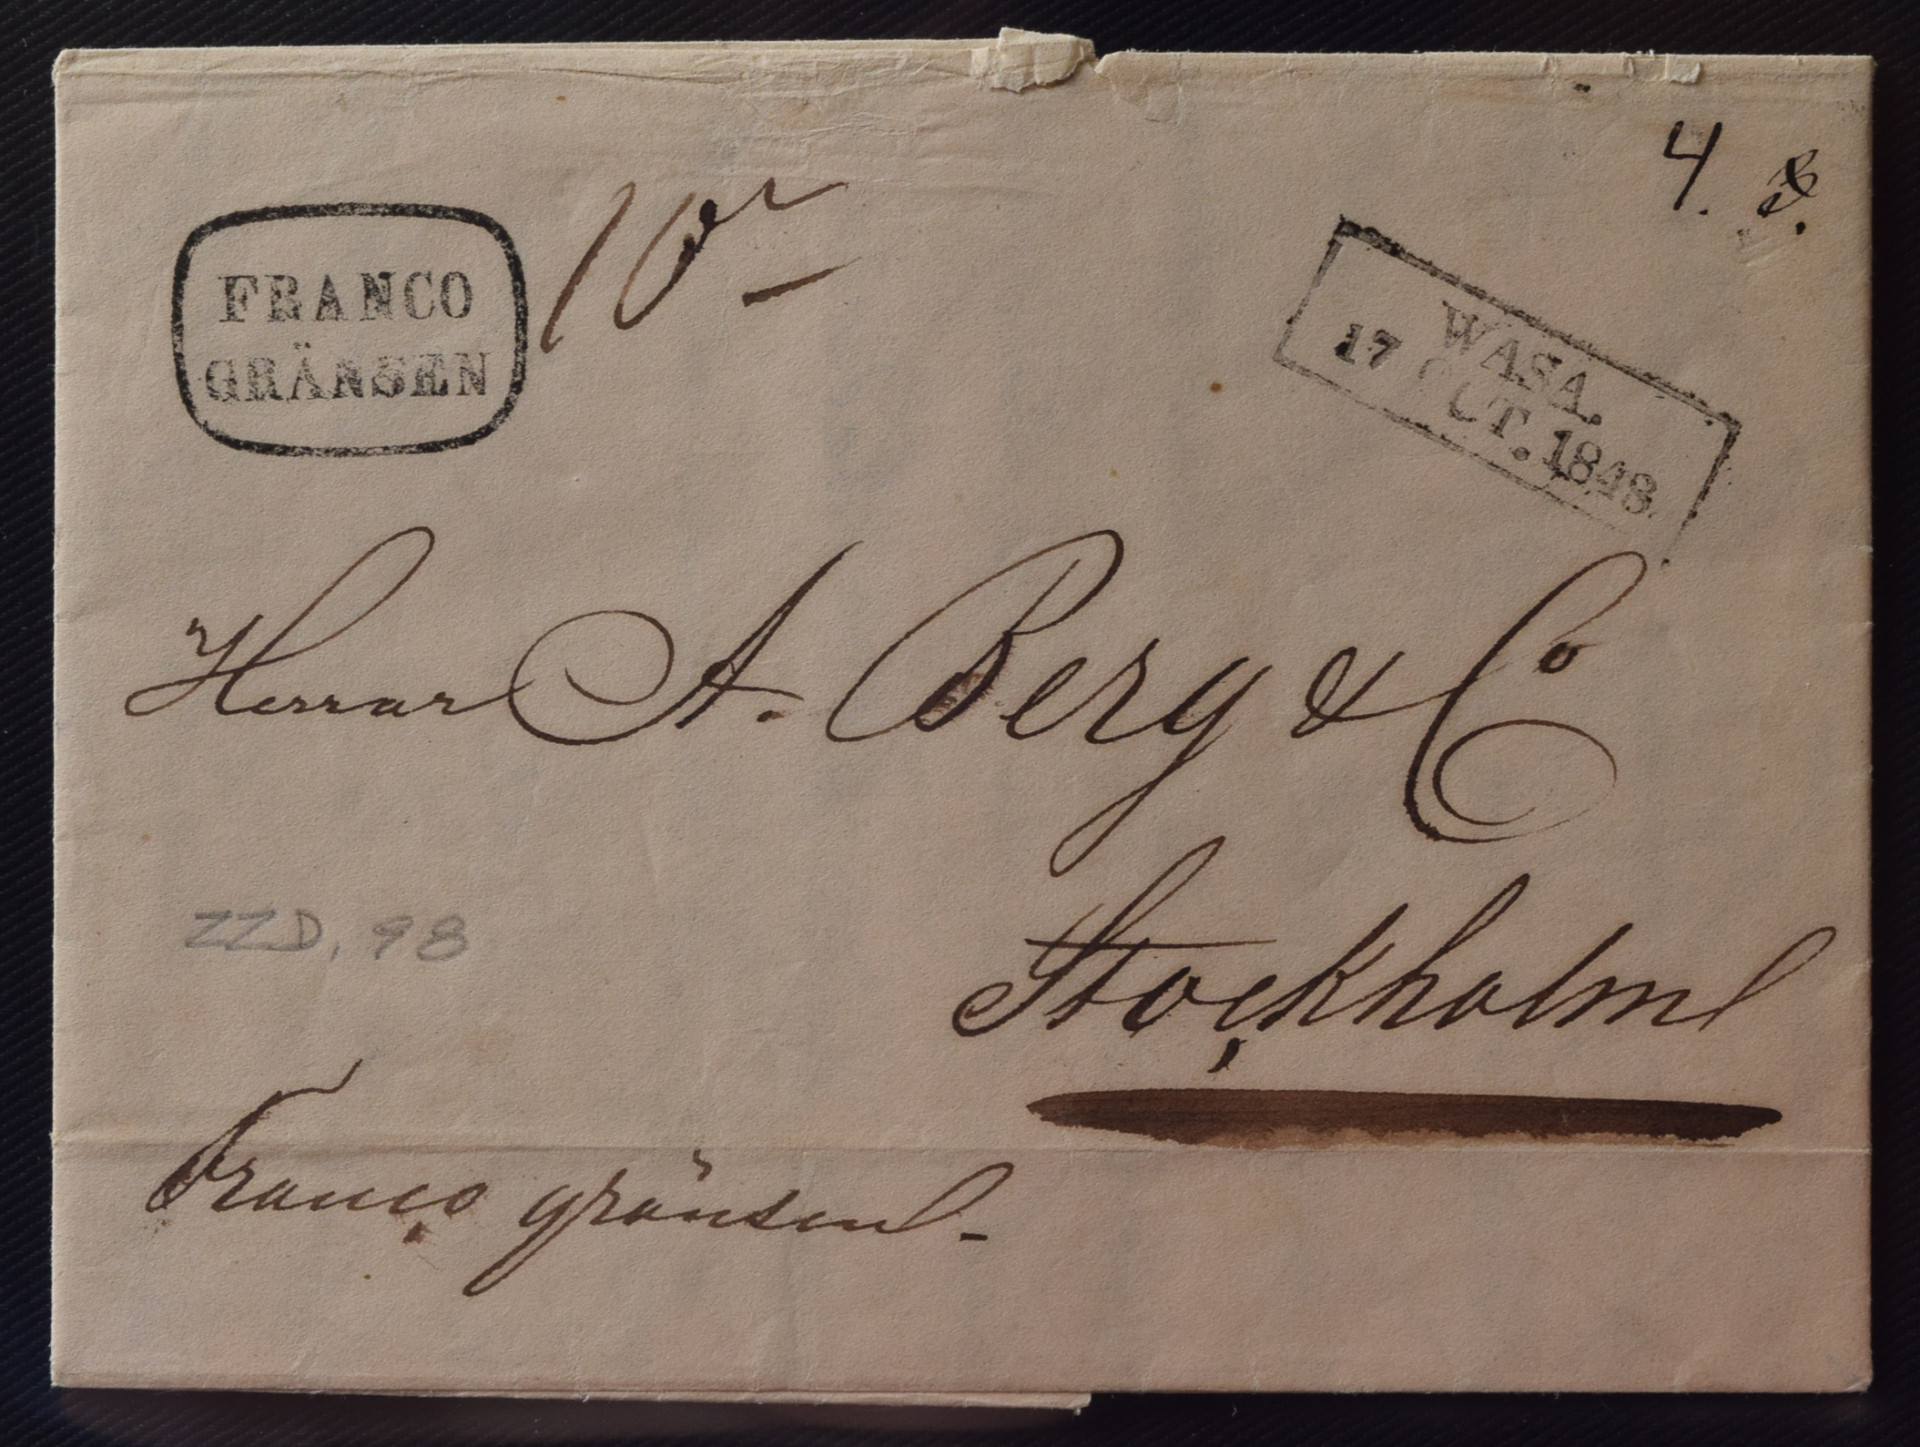 4.
FRANCO
GRÄNSEN
WASA.
17 OCT. 1848
Herrar A. Berg & Co
Stockholm
ZZD, 98
Franco gränsen.